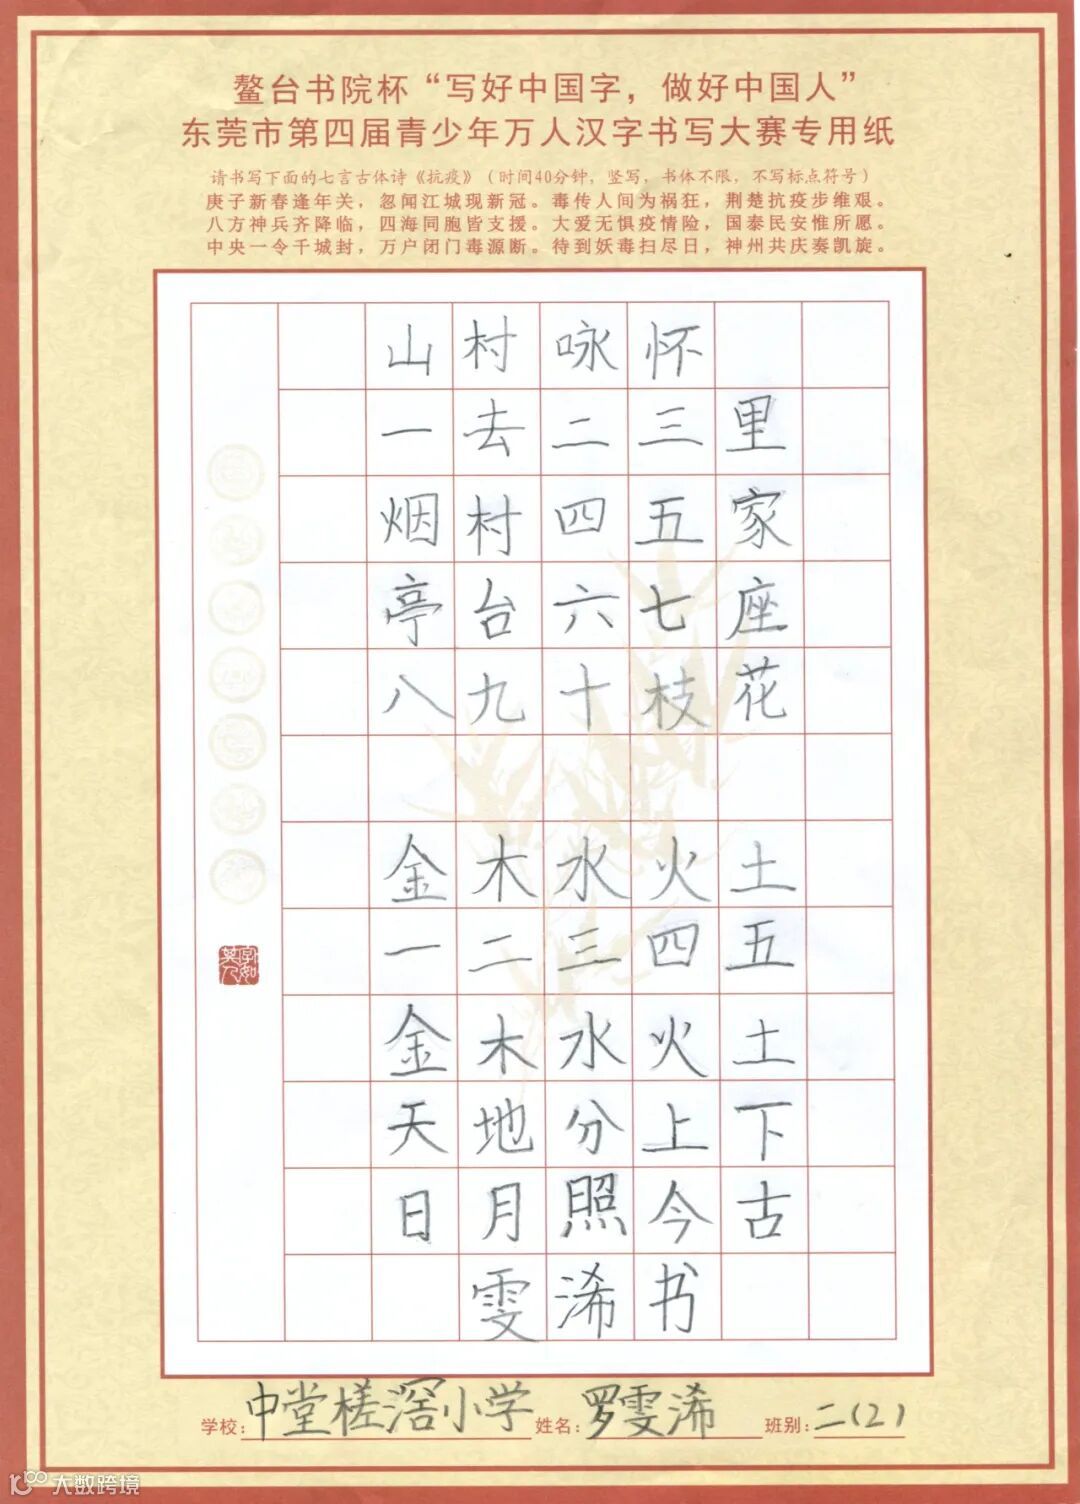 鳌台书院杯“写好中国字，做好中国人”
东莞市第四届青少年万人汉字书写大赛专用纸
请书写下面的七言古体诗《抗疫》（时间40分钟，竖写，书体不限，不写标点符号）
庚子新春逢年关，忽闻江城现新冠。毒传人间为祸狂，荆楚抗疫步维艰。
八方神兵齐降临，四海同胞皆支援。大爱无惧疫情险，国泰民安惟所愿。
中央一令千城封，万户闭门毒源断。待到妖毒扫尽日，神州共庆奏凯旋。
山村咏怀
一去二三里
烟村四五家
亭台六七座
八九十枝花
金木水火土
一二三四五
金木水火土
天地分上下
日月照今古
雯浠书
学校：中堂槎滘小学 姓名：罗雯浠 班别：二（2）
大数跨境